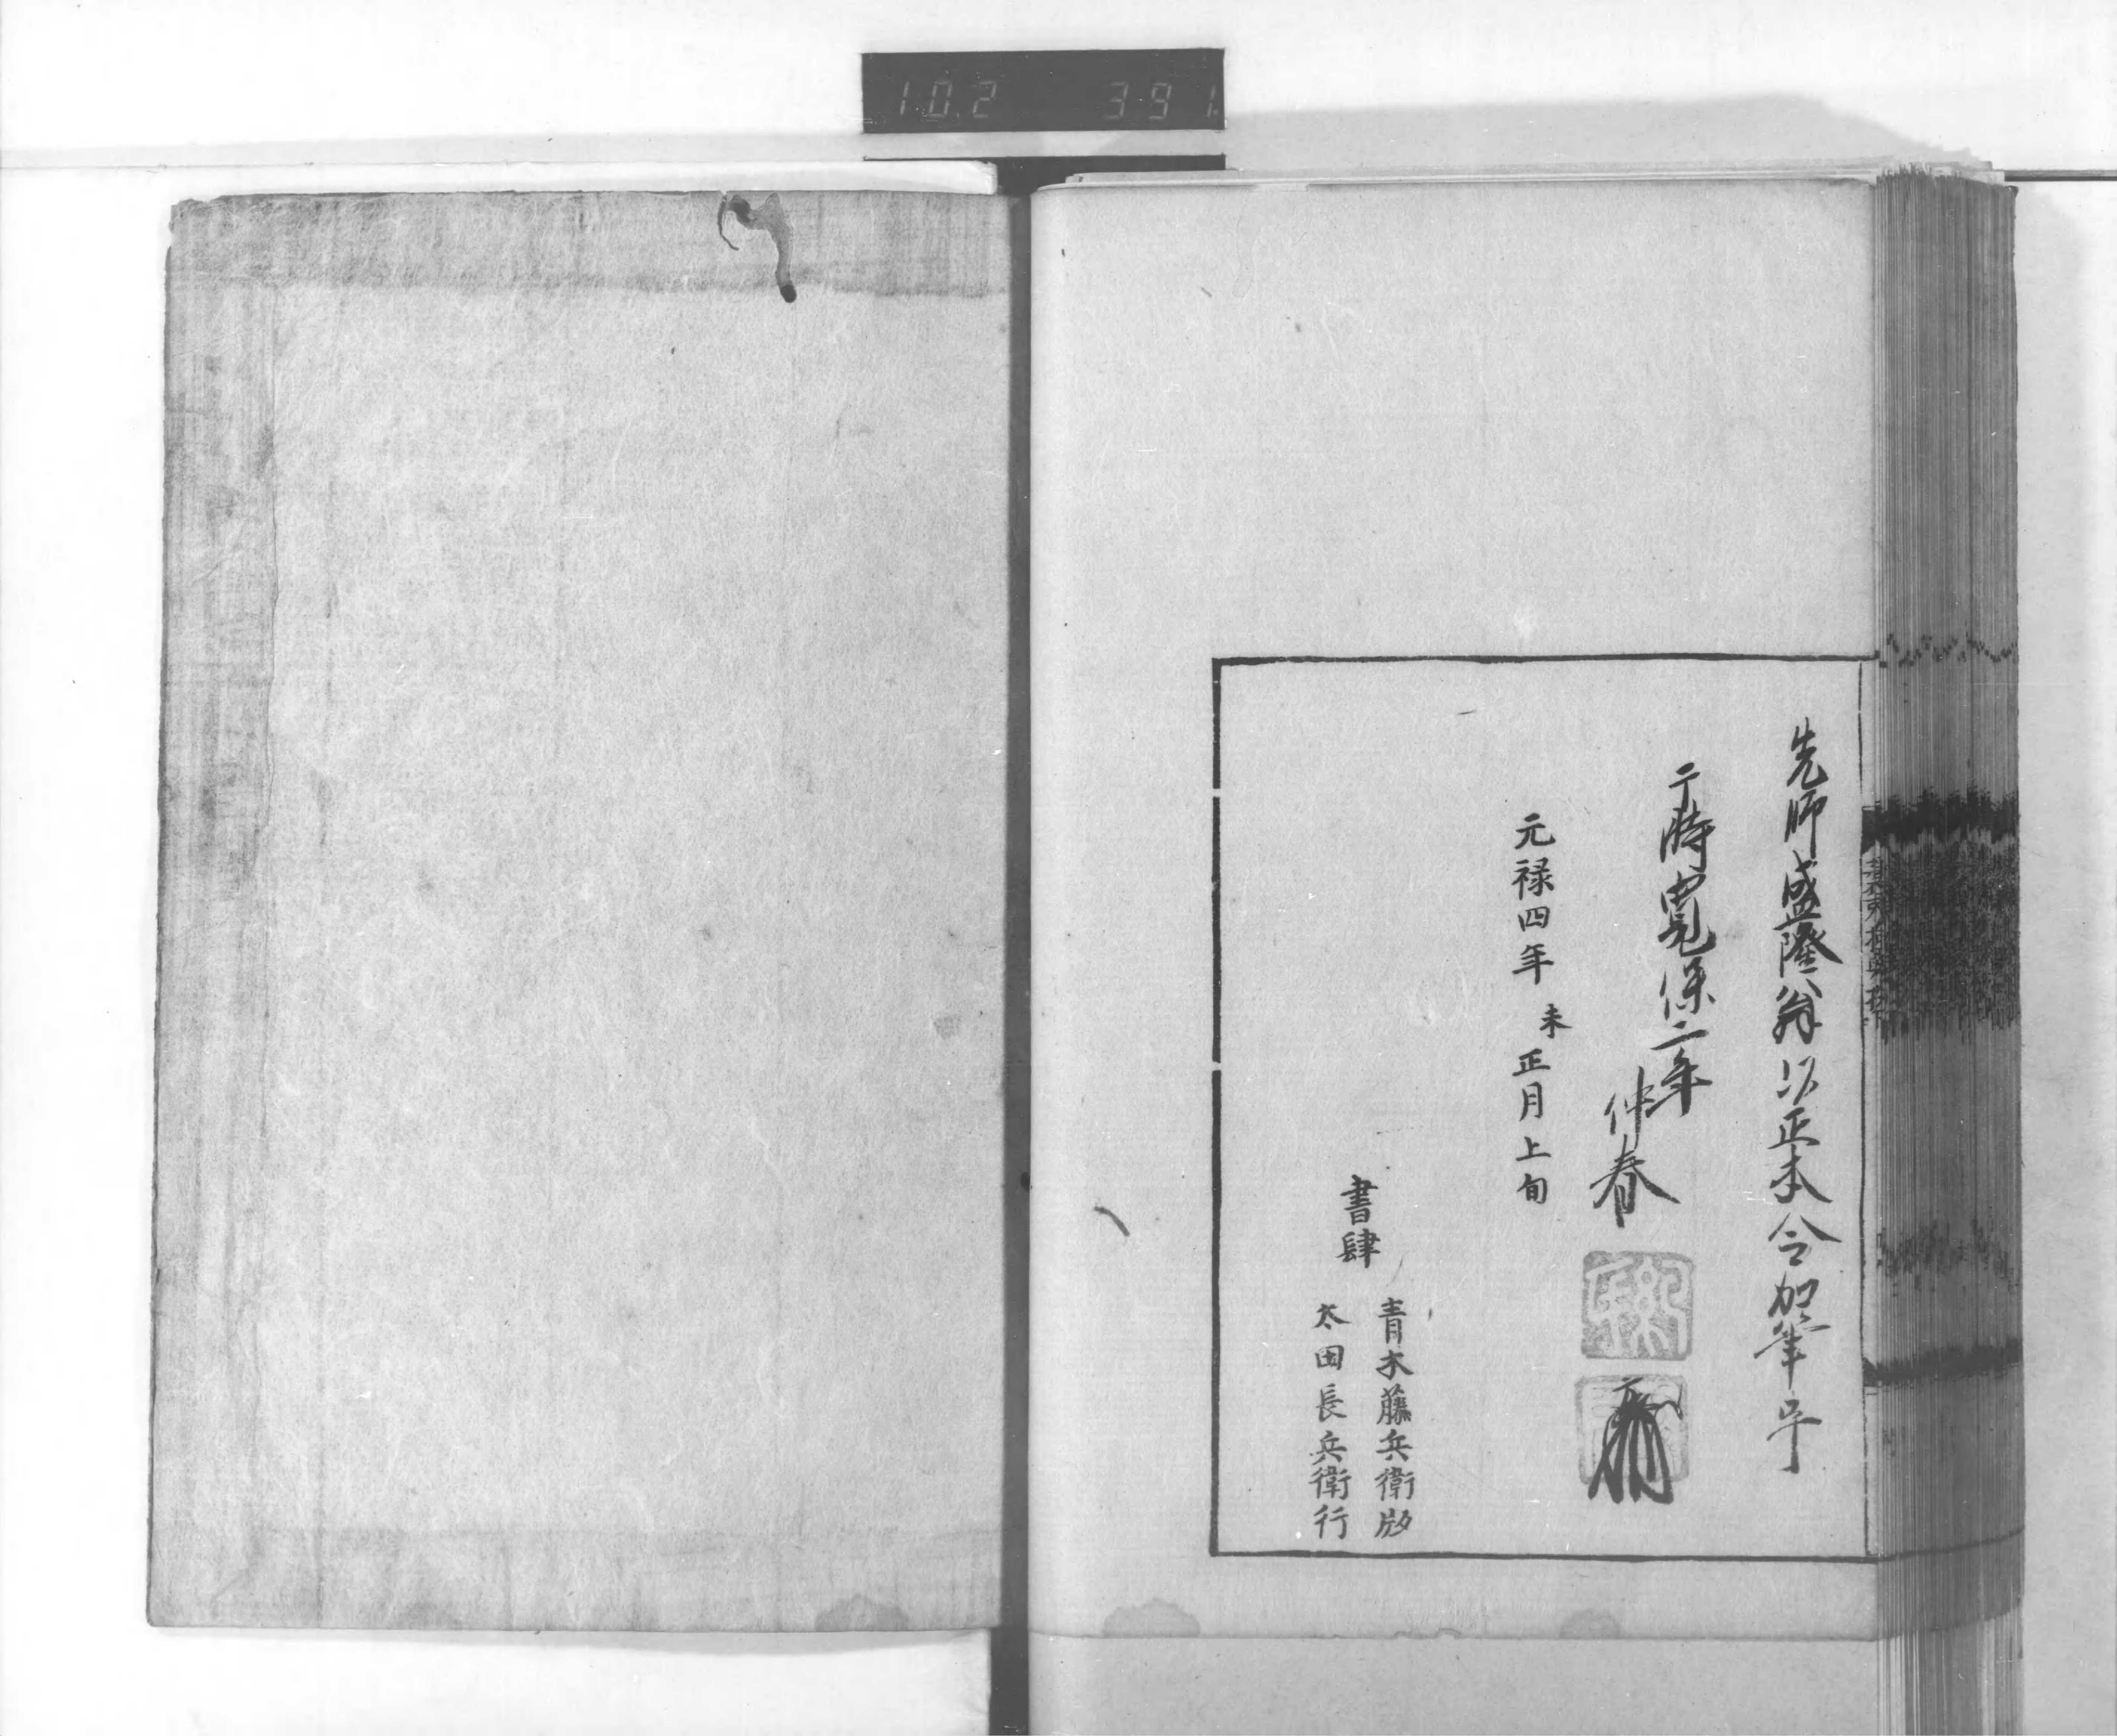 10.2 391
先師盛隆翁以正本令加筆畢
于時寛保二年
仲春
元禄四年未正月上旬
書肆
青木藤兵衛版
太田長兵衛行